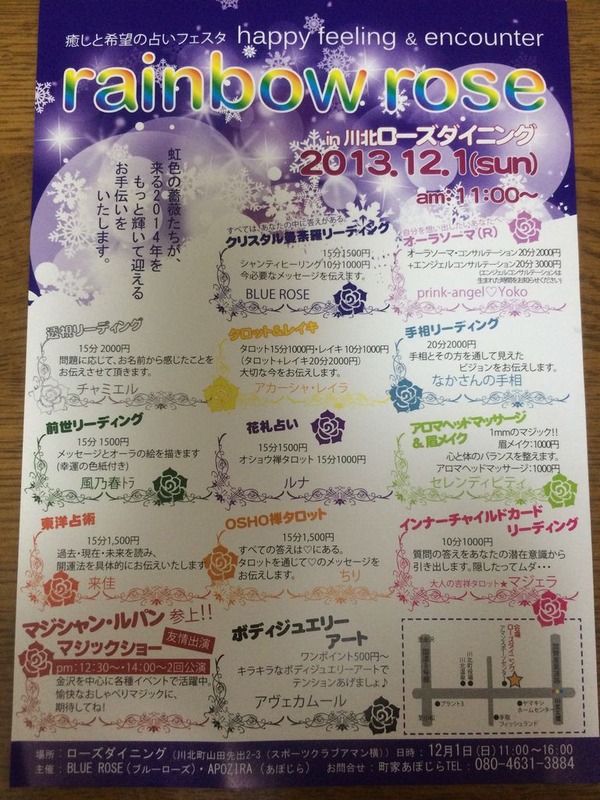 癒しと希望の占いフェスタ happy feeling & encounter
rainbow rose
in 川北ローズダイニング
2013.12.1(sun)
am: 11:00～
虹色の薔薇たちが、
来る2014年を
もっと輝いて迎える
お手伝いを
いたします。
すべては、あなたの中に答えがある。
クリスタル曼荼羅リーディング
15分1500円
シャンティヒーリング10分1000円
今必要なメッセージを伝えます。
BLUE ROSE
自分を想い出したいあなたへ
オーラソーマ(R)
オーラソーマ・コンサルテーション20分2000円
+エンジェルコンサルテーション20分 3000円
(エンジェルコンサルテーションは
生まれた時間をお知らせください)
prink-angel♡Yoko
透視リーディング
15分 2000円
問題に応じて、お名前から感じたことを
お伝えさせて頂きます。
チャミエル
タロット&レイキ
タロット15分1000円・レイキ 10分1000円
(タロット+レイキ20分2000円)
大切な今をお伝えします。
アカーシャ・レイラ
手相リーディング
20分2000円
手相とその方を通して見えた
ビジョンをお伝えします。
なかさんの手相
前世リーディング
15分 1500円
メッセージとオーラの絵を描きます
(幸運の色紙付き)
風乃春ﾄﾗ
花札占い
15分1500円
オショウ禅タロット 15分1000円
ルナ
アロマヘッドマッサージ
&眉メイク
1mmのマジック!!
眉メイク:1000円
心と体のバランスを整えます。
アロマヘッドマッサージ:1000円
セレンディピティ
東洋占術
15分1,500円
過去・現在・未来を読み、
開運法を具体的にお伝えいたします
来佳
OSHO禅タロット
15分1,500円
すべての答えは♡にある。
タロットを通じて♡のメッセージを
お伝えします。
ちり
インナーチャイルドカード
リーディング
10分1000円
質問の答えをあなたの潜在意識から
引き出します。隠したってムダ・・・
大人の吉祥タロット★マジェラ
マジシャン・ルパン 参上!!
マジックショー 友情出演
pm:12:30～・14:00～2回公演
金沢を中心に各種イベントで活躍中。
愉快なおしゃべりマジックに、
期待してね!
ボディジュエリー
アート
ワンポイント500円～
キラキラなボディジュエリーアートで
テンションあげましょ♪
アヴェカムール
会場
ローズダイニング
●プラント3
●ヤマキシ
ホームセンター
●手取
フィッシュランド
場所：ローズダイニング (川北町山田先出2-3 (スポーツクラブアマン横)) 日時：12月1日(日)11:00～16:00
主催：BLUE ROSE(ブルーローズ)・APOZIRA (あぽじら) お問合せ：町家あぽじらTEL：080-4631-3884